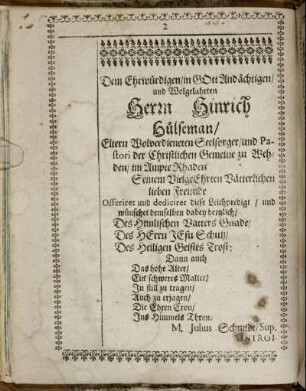 2
Dem Ehrwürdigen/ in GOtt Andächtigen/
und Wolgelahrten
Herrn Hinrich
Hülseman/
Eltern Wolverdieneten Seelsorger/ und Pa-
stori der Christlichen Gemeine zu Weh-
den/ im Ampte Rhaden
Seinem VielgeEhrten Vätterlichen
lieben Freunde
Offeriret und dediciret diese Leichpredigt / und
wünschet demselben dabey hertzlich/
Des Himlischen Vatters Gnade/
Des HErrn JEsu Schutz/
Des Heiligen Geistes Trost;
Dann auch
Das hohe Alter/
Ein schweres Malter/
In still zu tragen/
Auch zu erjagen/
Die Ehren Cron/
Ins Himmels Thron.
M. Julius Schmidt/ Sup.
INTROI-